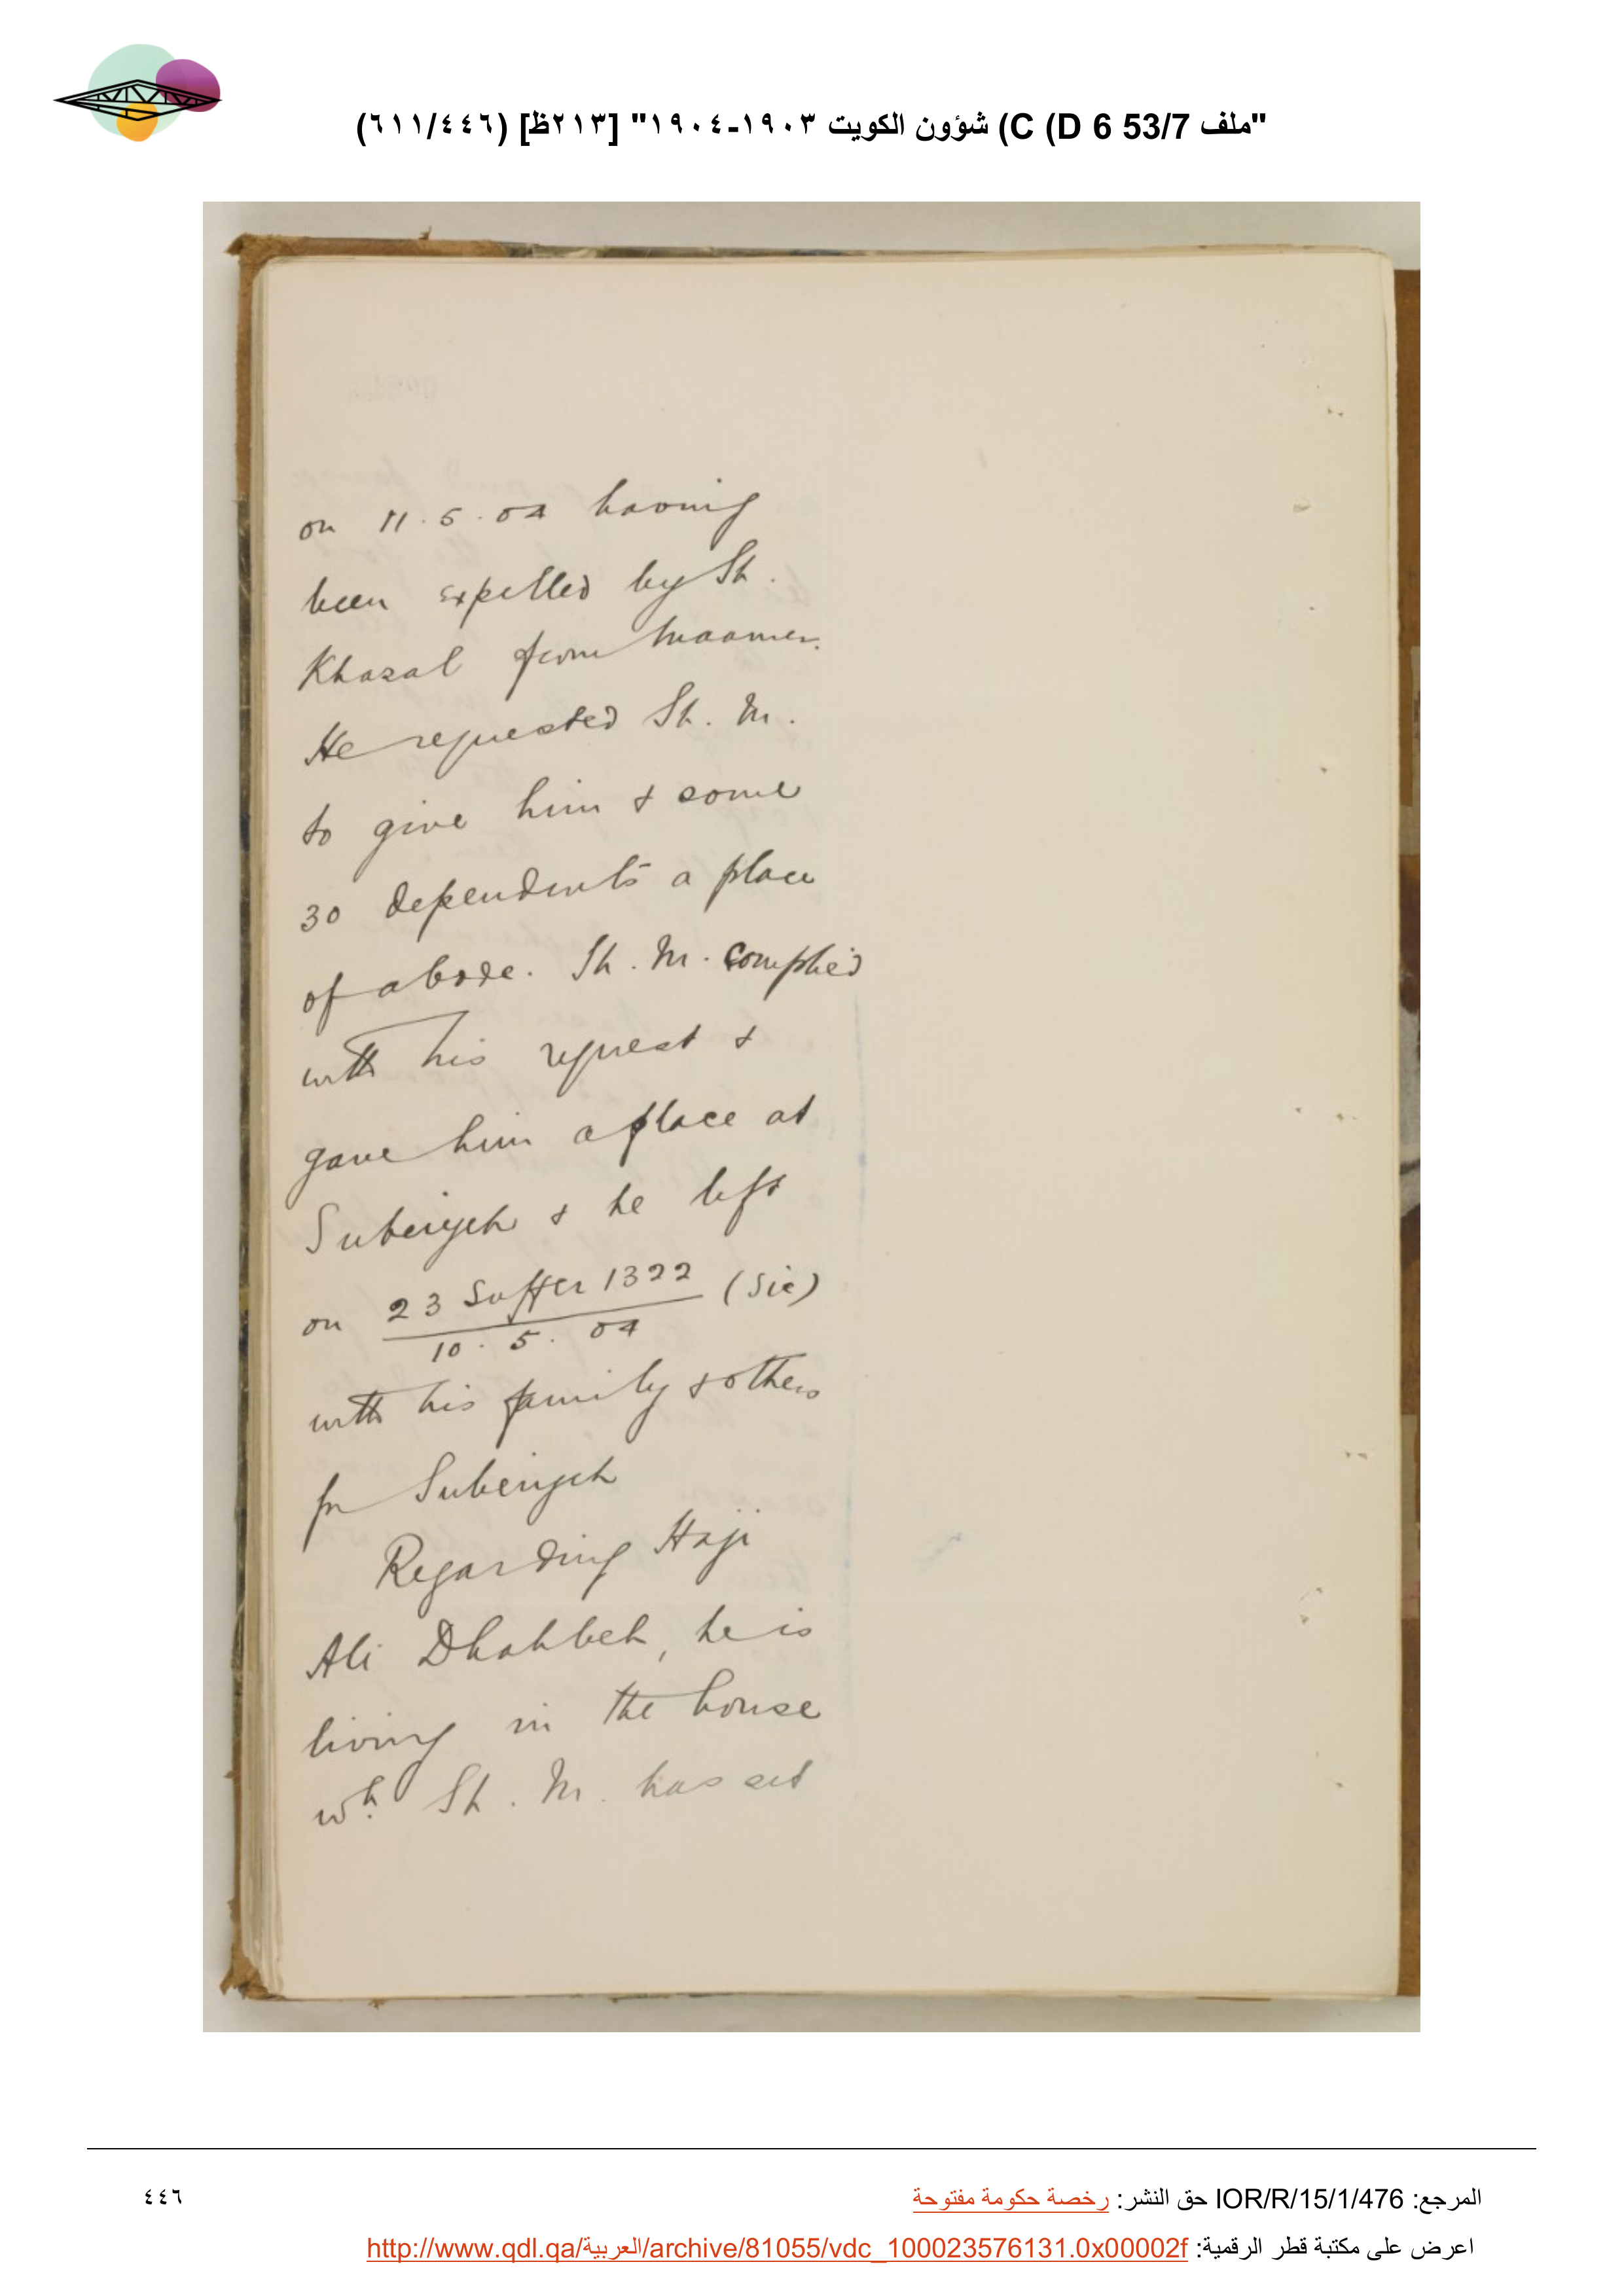 "ملف 53/7 C (D 6) شؤون الكويت ١٩٠٣-١٩٠٤" [٢١٣ظ] (٦١١/٤٤٦)
on 11.5.04 having
been expelled by Sh.
Khazal from Maamer.
He requested Sh. M.
to give him & some
30 dependents a place
of abode. Sh. M. complied
with his request &
gave him a place at
Subeiyeh & he left
on 23 Suffer 1322 (Sic)
10. 5. 04
with his family & others
for Subeiyeh
Regarding Haji
Ali Dhahbeh, he is
living in the house
wh. Sh. M. has set
المرجع: IOR/R/15/1/476 حق النشر: رخصة حكومة مفتوحة
٤٤٦
اعرض على مكتبة قطر الرقمية: http://www.qdl.qa/العربية/archive/81055/vdc_100023576131.0x00002f